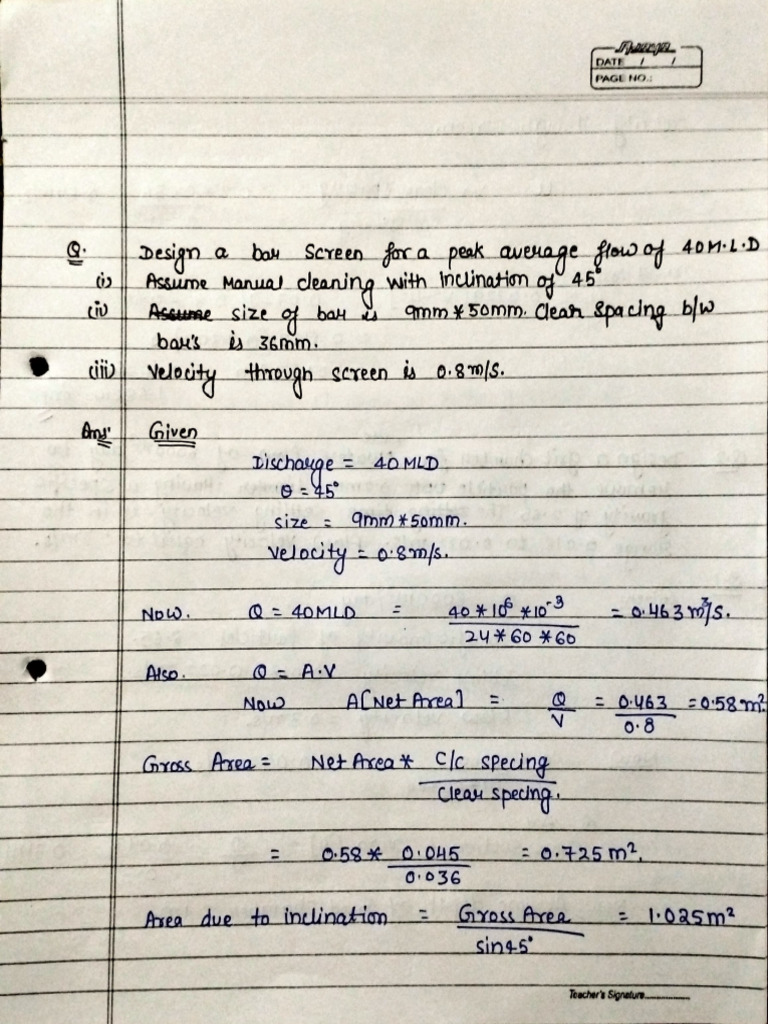 DATE / /
PAGE NO.:
Q. Design a bar Screen for a peak average flow of 40M.L.D
(i) Assume Manual cleaning with inclination of 45°
(ii) size of bar is 9mm*50mm. Clear Spacing b/w
bar's is 36mm.
(iii) Velocity through screen is 0.8m/s.
Ans: Given
Discharge = 40 MLD
θ = 45°
size = 9mm*50mm.
Velocity = 0.8m/s.
Now. Q = 40MLD = 40*10⁶*10⁻³ / 24*60*60 = 0.463 m³/s.
Also. Q = A.V
Now A[Net Area] = Q/V = 0.463/0.8 = 0.58m².
Gross Area = Net Area * C/c specing / Clear specing.
= 0.58 * 0.045/0.036 = 0.725m².
Area due to inclination = Gross Area / sin45° = 1.025m²
Teacher's Signature..............